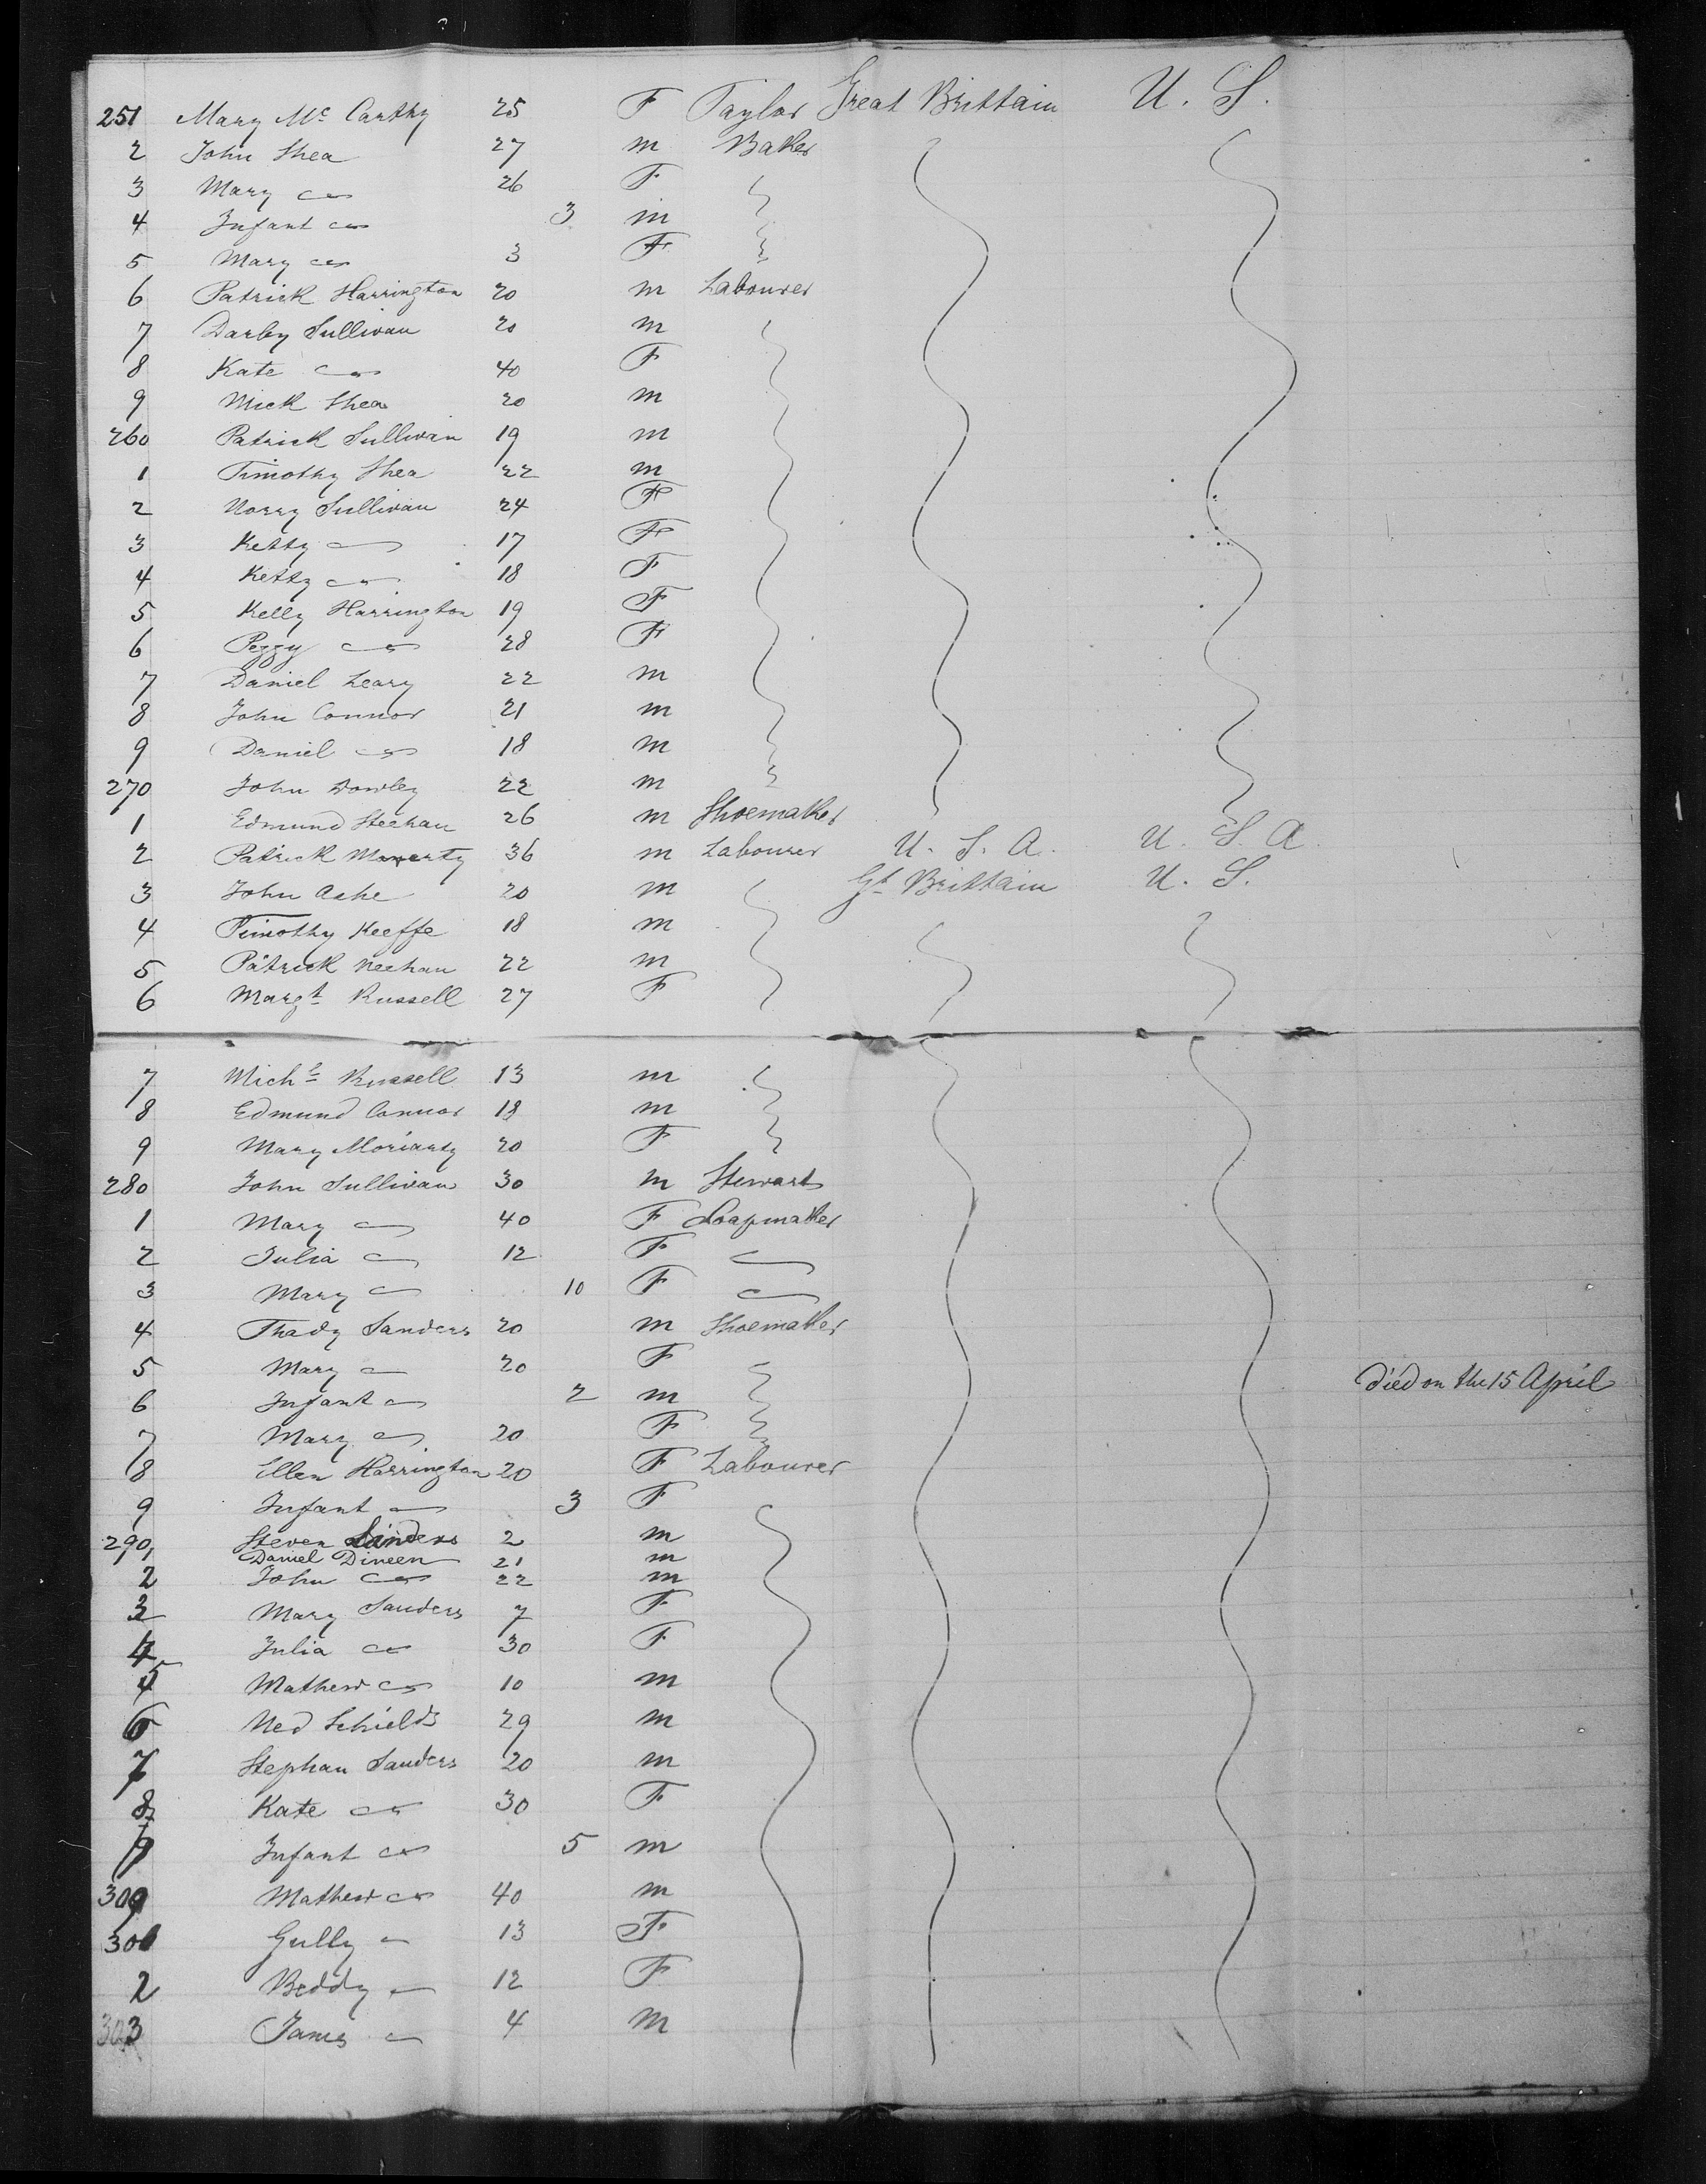 251 Mary Mc Carthy 25 F Taylor Great Brittain U. S.
2 John Shea 27 m Baker
3 Mary do 26 F
4 Infant do 3 m
5 Mary do 3 F
6 Patrick Harrington 20 m Labourer
7 Darby Sullivan 20 m
8 Kate do 40 F
9 Mick Shea 20 m
260 Patrick Sullivan 19 m
1 Timothy Shea 22 m
2 Norry Sullivan 24 F
3 Ketty 17 F
4 Ketty do 18 F
5 Kelly Harrington 19 F
6 Peggy do 28 F
7 Daniel Leary 22 m
8 John Connor 21 m
9 Daniel do 18 m
270 John Dowley 22 m
1 Edmund Sheehan 26 m Shoemaker
2 Patrick 36 m Labourer U. S. A. U. S. A
3 John Ashe 20 m Gt Brittain U. S.
4 Timothy Keeffe 18 m
5 Patrick Meehan 22 m
6 Margt Russell 27 F
7 Michl Russell 13 m
8 Edmund Connor 18 m
9 Mary Moriarty 20 F
280 John Sullivan 30 m Stewart
1 Mary 40 F Soapmaker
2 Julia 12 F
3 Mary 10 F
4 Thady Sanders 20 m Shoemaker
5 Mary 20 F
6 Infant 2 m Died on the 15 April
7 Mary 20 F
8 Ellen Harrington 20 F Labourer
9 Infant 3 F
290 Steven Sanders 2 m
1 Daniel Dineen 21 m
2 John do 22 m
3 Mary Sanders 7 F
4 Julia do 30 F
5 Mathew do 10 m
6 Ned Schields 29 m
7 Stephan Sanders 20 m
8 Kate do 30 F
9 Infant do 5 m
300 Mathew do 40 m
301 Gully 13 F
2 Beddy 12 F
303 James 4 m